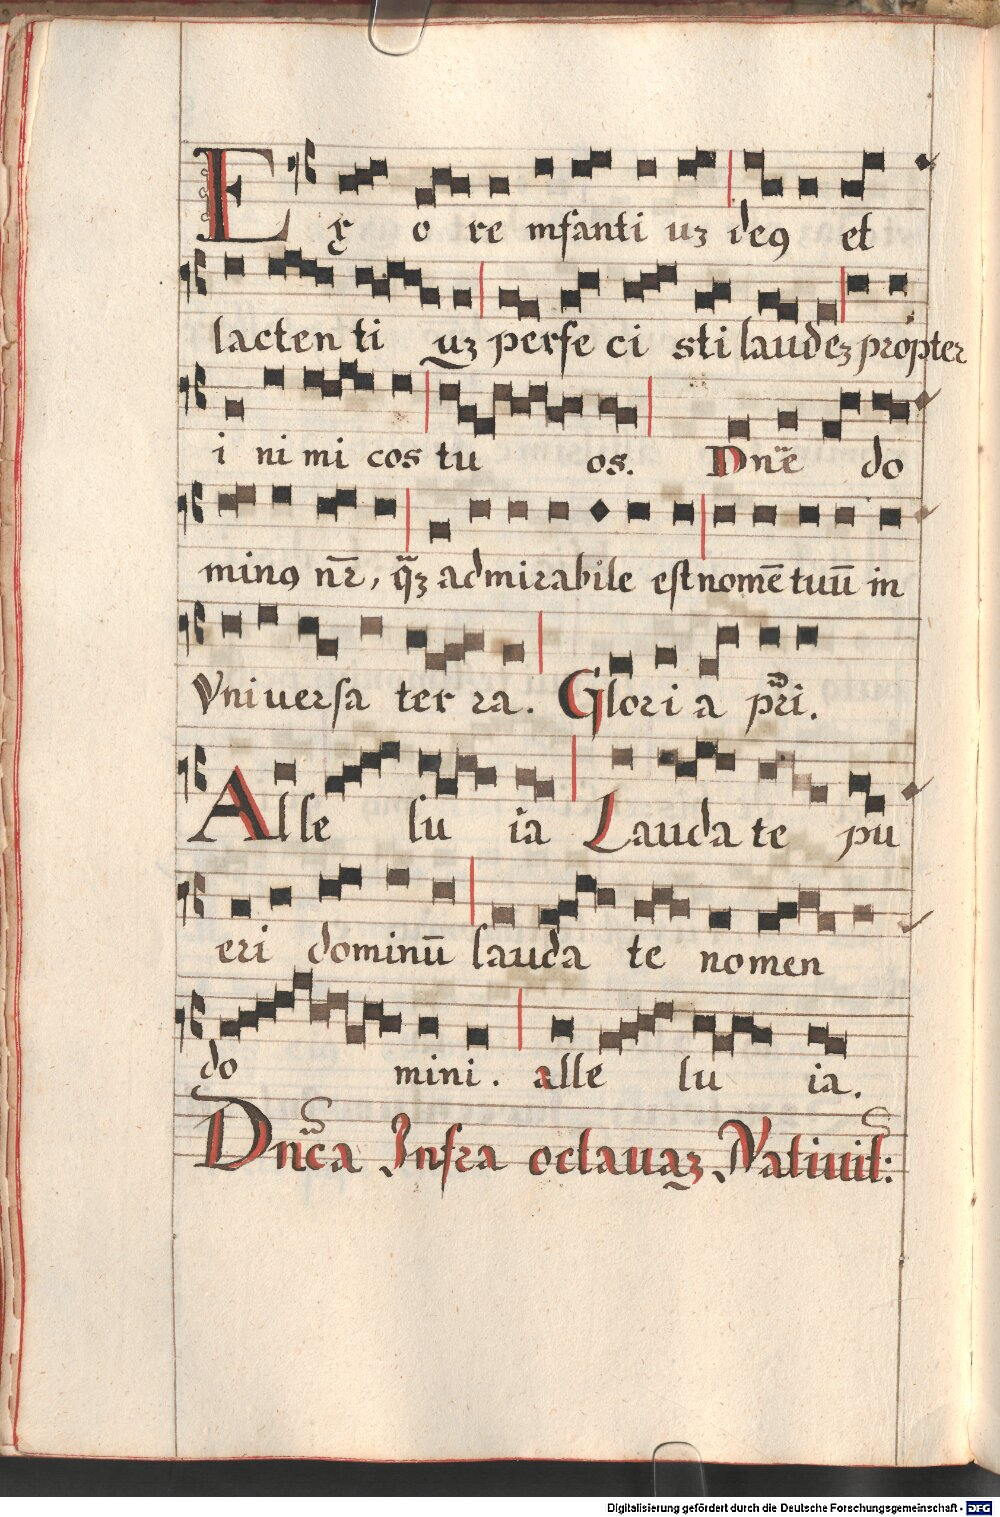 Ex o re infanti uʒ deꝰ et
lacten ti uʒ perfe ci sti laudeʒ propter
i ni mi cos tu os. Dn̄e do
minꝰ nr̄, q̄ʒ admirabile est nomē tuū in
Vniuersa ter ra. Glori a pr̄i.
Alle lu ia Laudate pu
eri dominū lauda te nomen
do mini. alle lu ia.
Dn̄ica Infra octauaʒ Natiuit:
Digitalisierung gefördert durch die Deutsche Forschungsgemeinschaft - DFG